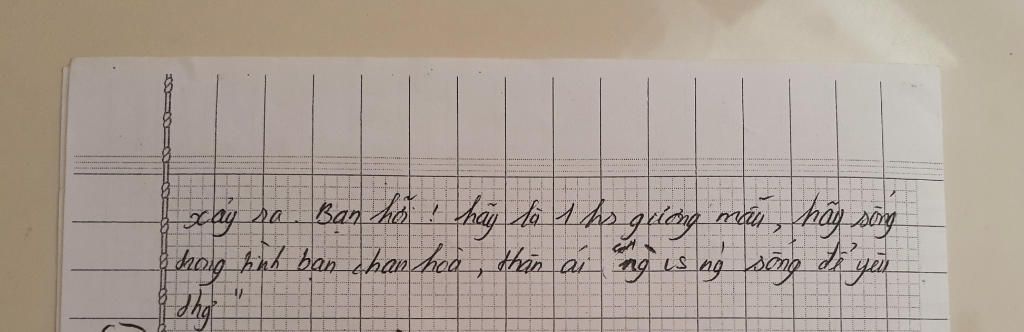 xảy ra. Bạn hỡi! hãy là 1 hs gương mẫu, hãy sống
trong tình bạn chan hoà, thân ái con ng` vs ng` sống để yêu
thg"